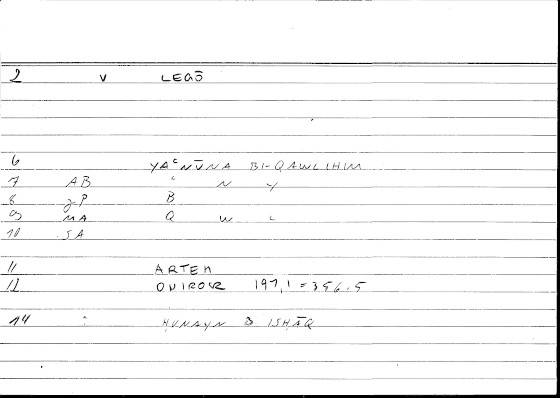 2 V LEGŌ
6 YAʿNŪNA BI-QAWLIHIM
7 AB ʿ N Y
8 gP B
9 MA Q W L
10 SA
11 ARTEM
12 ONIROCR 197,1 = 356.5
14 : ḤUNAYN B ISḤĀQ